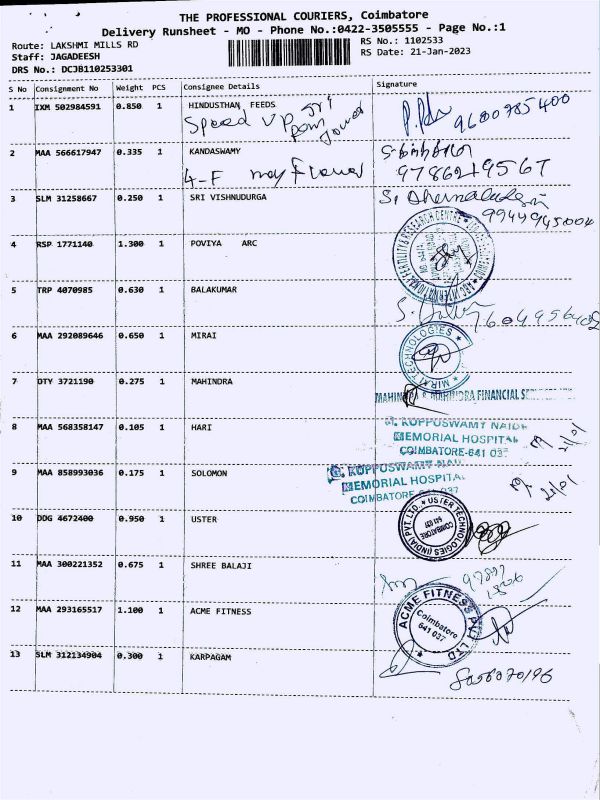 THE PROFESSIONAL COURIERS, Coimbatore
Delivery Runsheet - MO - Phone No.:0422-3505555 - Page No.:1
Route: LAKSHMI MILLS RD
RS No.: 1102533
Staff: JAGADEESH
RS Date: 21-Jan-2023
DRS No.: DCJB110253301
S No Consignment No Weight PCS Consignee Details Signature
1 IXM 502984591 0.850 1 HINDUSTHAN FEEDS
Speed UP Sri
9600985400
2 MAA 566617947 0.335 1 KANDASWAMY
4-F may Flower
3 SLM 31258667 0.250 1 SRI VISHNUDURGA
9944945004
4 RSP 1771140 1.300 1 POVIYA ARC
FERTILITY & RESEARCH CENTRE
5 TRP 4070985 0.630 1 BALAKUMAR
6 MAA 292089646 0.650 1 MIRAI
MIRAI TECHNOLOGIES
7 OTY 3721190 0.275 1 MAHINDRA
MAHINDRA & MAHINDRA FINANCIAL
8 MAA 568358147 0.105 1 HARI
KUPPUSWAMY NAIDU
MEMORIAL HOSPITAL
COIMBATORE-641 037
21/01
9 MAA 858993036 0.175 1 SOLOMON
G. KUPPUSWAMY NAI
MEMORIAL HOSPITAL
COIMBATORE-641 037
21/01
10 DDG 4672400 0.950 1 USTER
USTER TECHNOLOGIES (INDIA) PVT. LTD.
COIMBATORE
641 037
11 MAA 300221352 0.675 1 SHREE BALAJI
12 MAA 293165517 1.100 1 ACME FITNESS
ACME FITNESS PVT LTD
Coimbatore
641 037
13 SLM 312134904 0.300 1 KARPAGAM